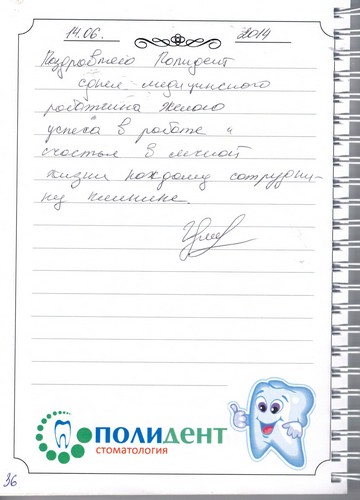 14.06. 2014
Поздравляю Полидент
с днем медицинского
работника Желаю
успеха в работе и
счастья в личной
жизни каждому сотрудни-
ку клиники.
ПОЛИДЕНТ
СТОМАТОЛОГИЯ
36